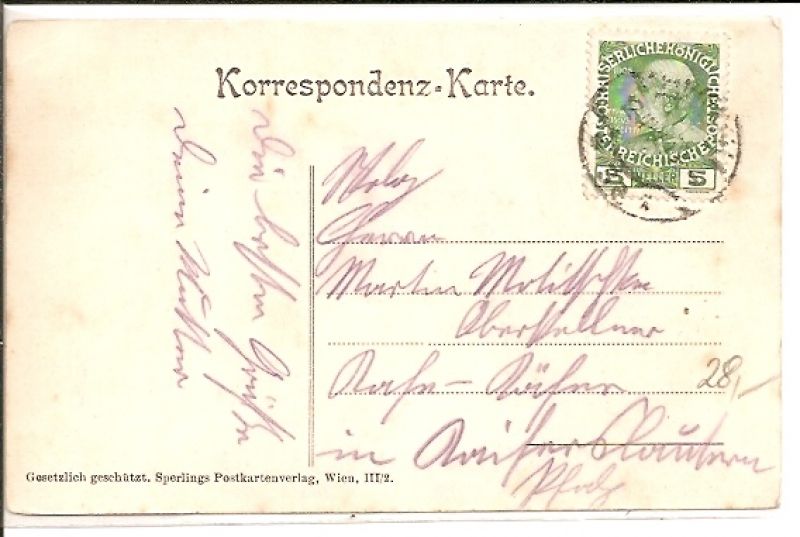 Korrespondenz-Karte.
KAISERLICHE KÖNIGLICHE
ÖSTERREICHISCHE POST
5 HELLER 5
Die besten Grüße
Deine Mutter
Herrn
Martin Molitschke
Oberkellner
Kafe-
28,-
in Kaiserslautern
Pfalz
Gesetzlich geschützt. Sperlings Postkartenverlag, Wien, III/2.